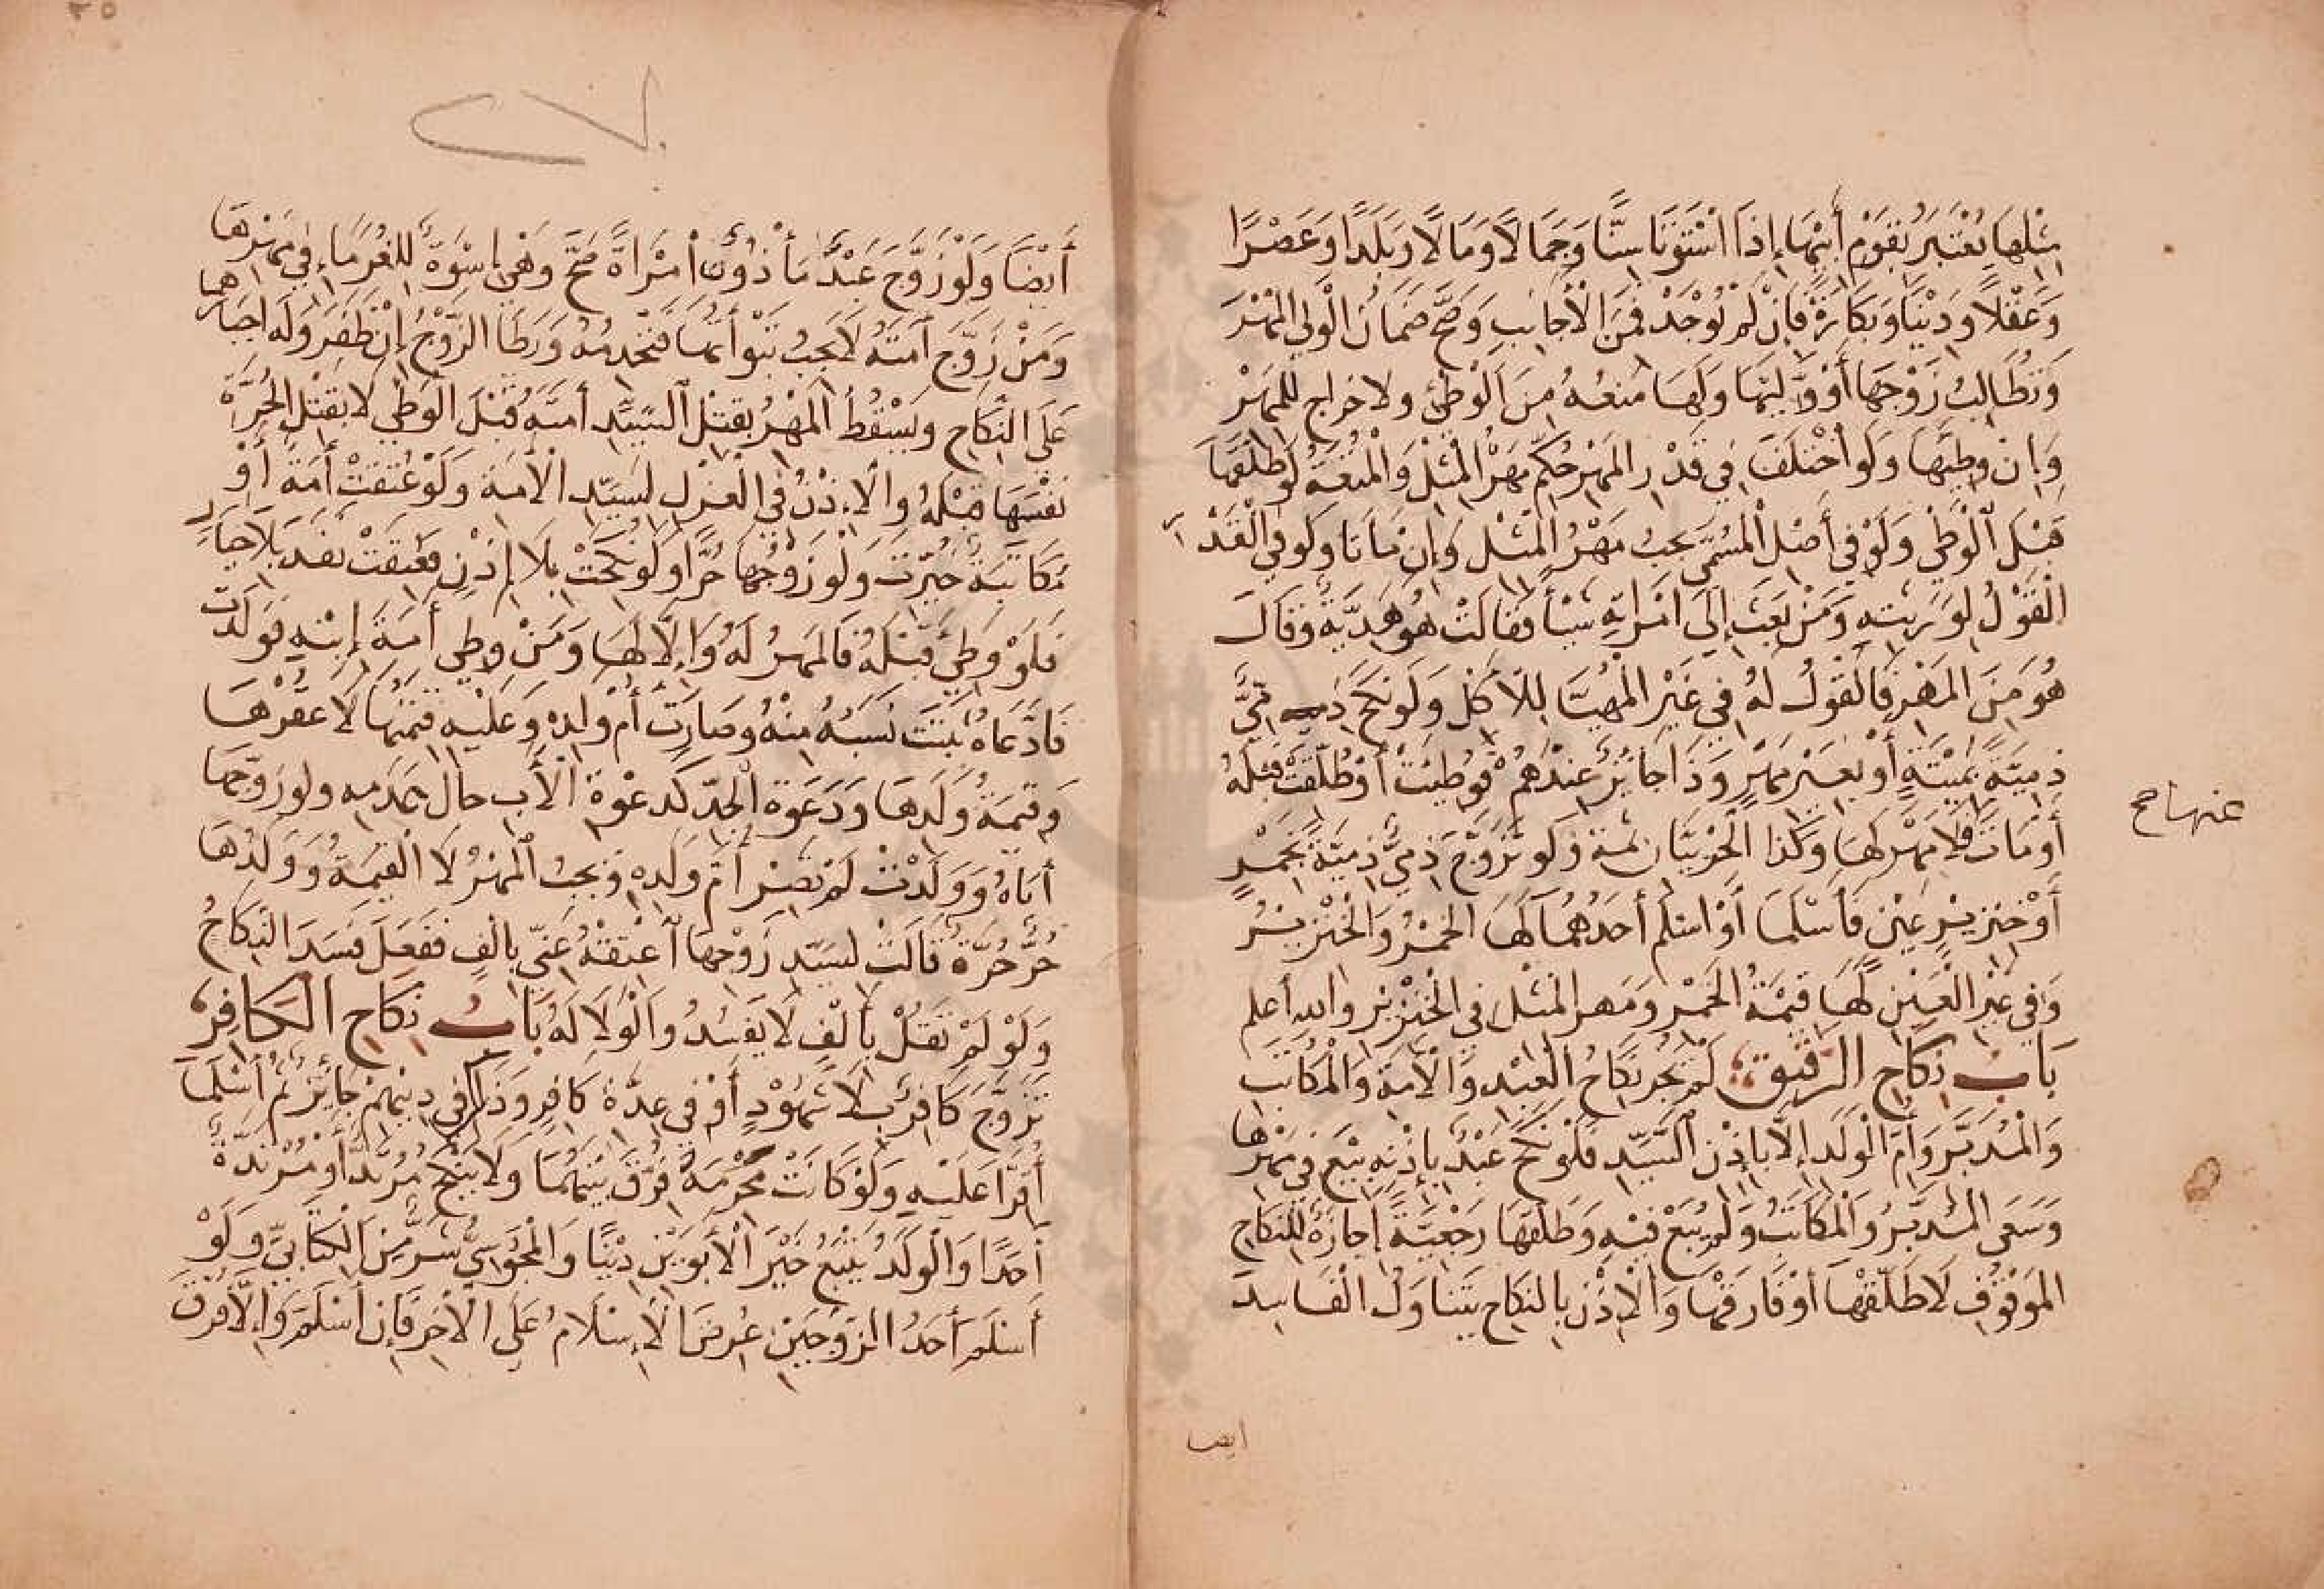 مِثْلِهَا يُعْتَبَرُ بِقَوْمِ أَبِيْهَا إِذَا اسْتَوَتَا سِنًّا وَجَمَالًا وَمَالًا وَبَلَدًا وَعَصْرًا
وَعَقْلًا وَدِيْنًا وَبَكَارَةً فَإِنْ لَمْ تُوْجَدْ فَمِنَ الْأَجَانِبِ وَصَحَّ ضَمَانُ الْوَلِيِّ الْمَهْرَ
وَتُطَالِبُ زَوْجَهَا أَوْ وَلِيَّهَا وَلَهَا مَنْعُهُ مِنَ الْوَطْيِ وَلَا خراج لِلْمَهْرِ
وَإِنْ وَطِئَهَا وَلَو اخْتَلَفَا فِي قَدْرِ الْمَهْرِ حُكِّمَ مَهْرُ الْمِثْلِ وَالْمُتْعَةُ لَوْ طَلَّقَهَا
قَبْلَ الْوَطْيِ وَلَوْ فِي أَصْلِ الْمُسَمَّى يَجِبُ مَهْرُ الْمِثْلِ وَإِنْ مَاتَا وَلَوْ فِي الْقَدْرِ
الْقَوْلُ لِوَرَثَتِهِ وَمَنْ بَعَثَ إِلَى امْرَاتِهِ شَيْأً فَقَالَتْ هُوَ هَدِيَّةٌ وَقَالَ
هُوَ مِنَ الْمَهْرِ فَالْقَوْلُ لَهُ فِي غَيْرِ الْمُهَيَّا لِلْأَكْلِ وَلَوْ نَكَحَ ذِمِّيٌّ
ذِمِيَّةً بِمَيْتَةٍ أَوْ بِغَيْرِ مَهْرٍ وَذَا جَائِزٌ عِنْدَهُمْ فَوُطِئَتْ أَوْ طُلِّقَتْ قَبْلَهُ
أَوْ مَاتَ فَلَا مَهْرَ لَهَا وَكَذَا الْحَرْبِيَّانِ ثَمَّةَ وَلَوْ تَزَوَّجَ ذِمِّيٌّ ذِمِيَّةً بِخَمْرٍ
عنها صح
أَوْ خِنْزِيْرٍ عَيْنٍ فَأَسْلَمَا أَوْ اسْلَمَ أَحَدُهُمَا لَهَا الْخَمْرُ وَالْخِنْزِيْرُ
وَفِي غَيْرِ الْعَيْنِ لَهَا قِيْمَةُ الْخَمْرِ وَمَهْرُ الْمِثْلِ فِي الْخِنْزِيْرِ وَاللهُ أَعْلَم
بَابُ نِكَاحِ الرَّقِيْقِ لَمْ يَجُزْ نِكَاحُ الْعَبْدِ وَالْأَمَةِ وَالْمُكَاتَبِ
وَالْمُدَبَّرِ وَأُمِّ الْوَلَدِ إِلَّا بِإِذْنِ السَّيِّدِ فَلَوْ نَكَحَ عَبْدٌ بِإِذْنِهِ بِيْعَ فِي مَهْرِهَا
وَسَعَى الْمُدَبَّرُ وَالْمُكَاتَبُ وَلَمْ يُبَعْ فِيْهِ وَطَلِّقْهَا رَجْعِيَّةً إِجَازَةٌ لِلنِّكَاحِ
الْمَوْقُوْفِ لَا طَلِّقْهَا أَوْ فَارِقْهَا وَالْإِذْنُ بِالنِّكَاحِ يَتَنَاوَلُ الْفَاسِدَ
ايضا
أَيْضًا وَلَوْ زَوَّجَ عَبْدًا مَأْذُوْنًا امْرَاةً صَحَّ وَهِيَ إِسْوَةٌ لِلْغُرَمَاءِ فِي مَهْرِهَا
وَمَنْ زَوَّجَ أَمَتَهُ لَا يَجِبُ تَبْوِأَتُهَا فَتَخْدِمُهُ وَيَطَأُ الزَّوْجُ إِنْ ظَفِرَ وَلَه اجبارهما
عَلَى النِّكَاحِ وَيَسْقُطُ الْمَهْرُ بِقَتْلِ السَّيِّدِ أَمَتَهُ قَبْلَ الْوَطْيِ لَا بِقَتْلِ الْحُرَّةِ
نَفْسَهَا قَبْلَهُ وَالْإِذْنُ فِي الْعَزْلِ لِسَيِّدِ الْأَمَةِ وَلَوْ عُتِقَتْ أَمَةٌ أَوْ
مُكَاتَبَةٌ خُيِّرَتْ وَلَوْ زَوْجُهَا حُرًّا وَلَوْ نَكَحَتْ بِلَا إِذْنٍ فَعُتِقَتْ نَفَذَ بِلَا خِيَارٍ
فَلَوْ وَطِئَ قَبْلَهُ فَالْمَهْرُ لَهُ وَإِلَّا لَهَا وَمَنْ وَطِي أَمَةَ إِبْنِهِ فَوَلَدَتْ
فَادَّعَاهُ ثَبَتَ نَسَبُهُ مِنْهُ وَصَارَتْ أُمَّ وَلَدِهِ وَعَلَيْهِ قِيْمَتُهَا لَا عُقْرُهَا
وَقِيْمَةُ وَلَدِهَا وَدَعْوَةُ الْجَدِّ كَدَعْوَةِ الْأَبِ حَالَ عَدَمِهِ وَلَوْ زَوَّجَهَا
أَبَاهُ وَوَلَدَتْ لَمْ تَصِرْ أُمَّ وَلَدِهِ وَيَجِبُ الْمَهْرُ لَا الْقِيْمَةُ وَوَلَدُهَا
حُرٌّ حُرَّةٌ قَالَتْ لِسَيِّدِ زَوْجِهَا أَعْتِقْهُ عَنِّي بِالْفٍ فَفَعَلَ فَسَدَ النِّكَاحُ
وَلَوْ لَمْ تَقُلْ بِأَلْفٍ لَا يَفْسُدُ وَالْوَلَا لَهُ بَابُ نِكَاحِ الْكَافِرِ
تَزَوَّجَ كَافِرٌ بِلَا شُهُوْدٍ أَوْ فِي عِدَّةِ كَافِرٍ وَذَا فِي دِيْنِهِمْ جَائِزٌ ثُمَّ أَسْلَمَا
أُقِرَّا عَلَيْهِ وَلَوْ كَانَتْ مَحْرَمَهُ فُرِّقَ بَيْنَهُمَا وَلَا يَنْكِحُ مُرْتَدٌّ أَوْ مُرْتَدَّةٌ
أَحَدًا وَالْوَلَدُ يَتْبَعُ خَيْرَ الْأَبَوَيْنِ دِيْنًا وَالْمَجُوْسِيُّ شَرٌّ مِنَ الْكِتَابِيِّ وَلَوْ
أَسْلَمَ أَحَدُ الزَّوْجَيْنِ عُرِضَ الْإِسْلَامُ عَلَى الْآخَرِ فَإِنْ أَسْلَمَ وَإِلَّا فُرِّقَ